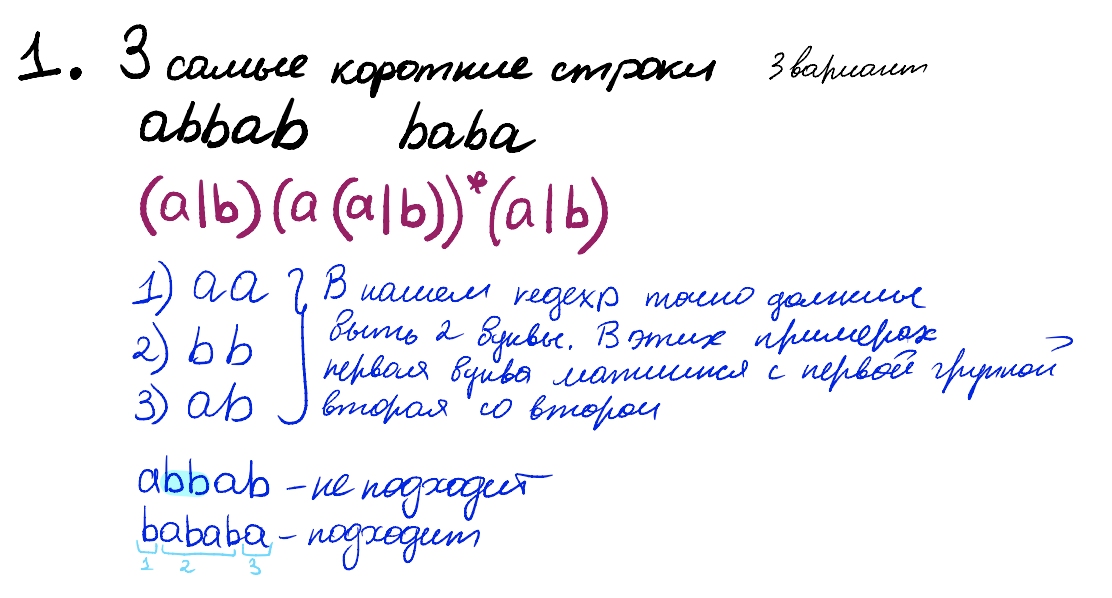 1. 3 самые короткие строки 3 вариант
abbab baba
(a|b)(a(a|b))*(a|b)
1) aa
2) bb
3) ab
В нашем regexp точно должны
быть 2 буквы. В этих примерах
первая буква матчится с первой группой
вторая со второй
abbab – не подходит
bababa – подходит
1 2 3